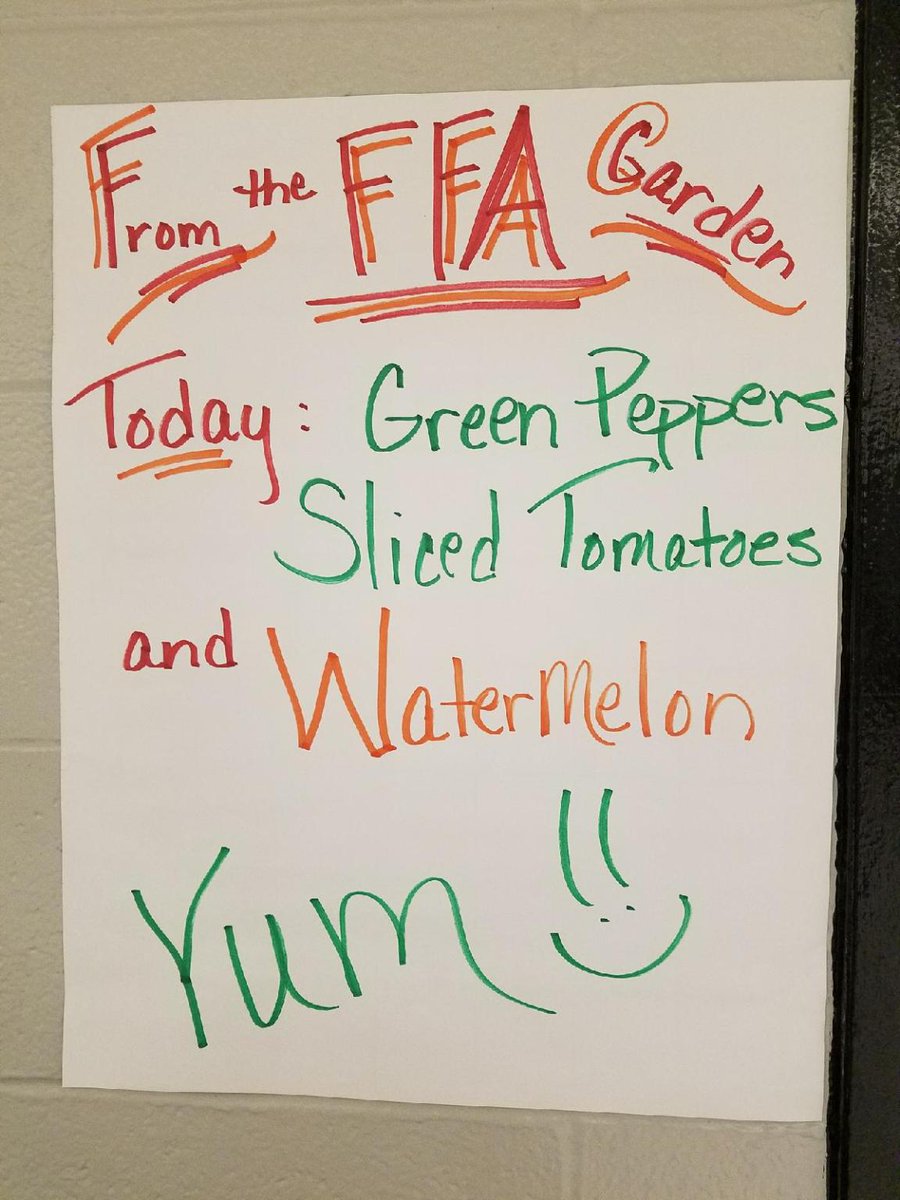 From the FFA Garden
Today: Green Peppers
Sliced Tomatoes
and Watermelon
Yum!!